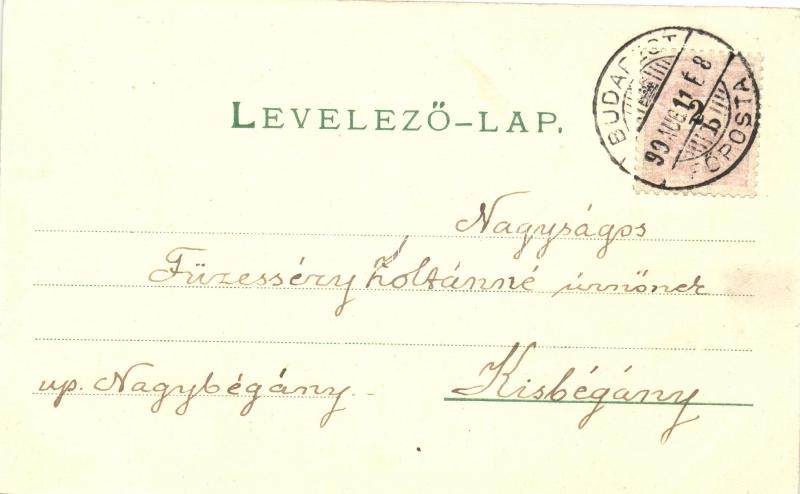 LEVELEZŐ-LAP.
BUDAPEST
99 AUG 11 E 8
FŐPOSTA
Nagyságos
Füzesséry Zoltánné úrnőnek
up. Nagybégány
Kisbégány